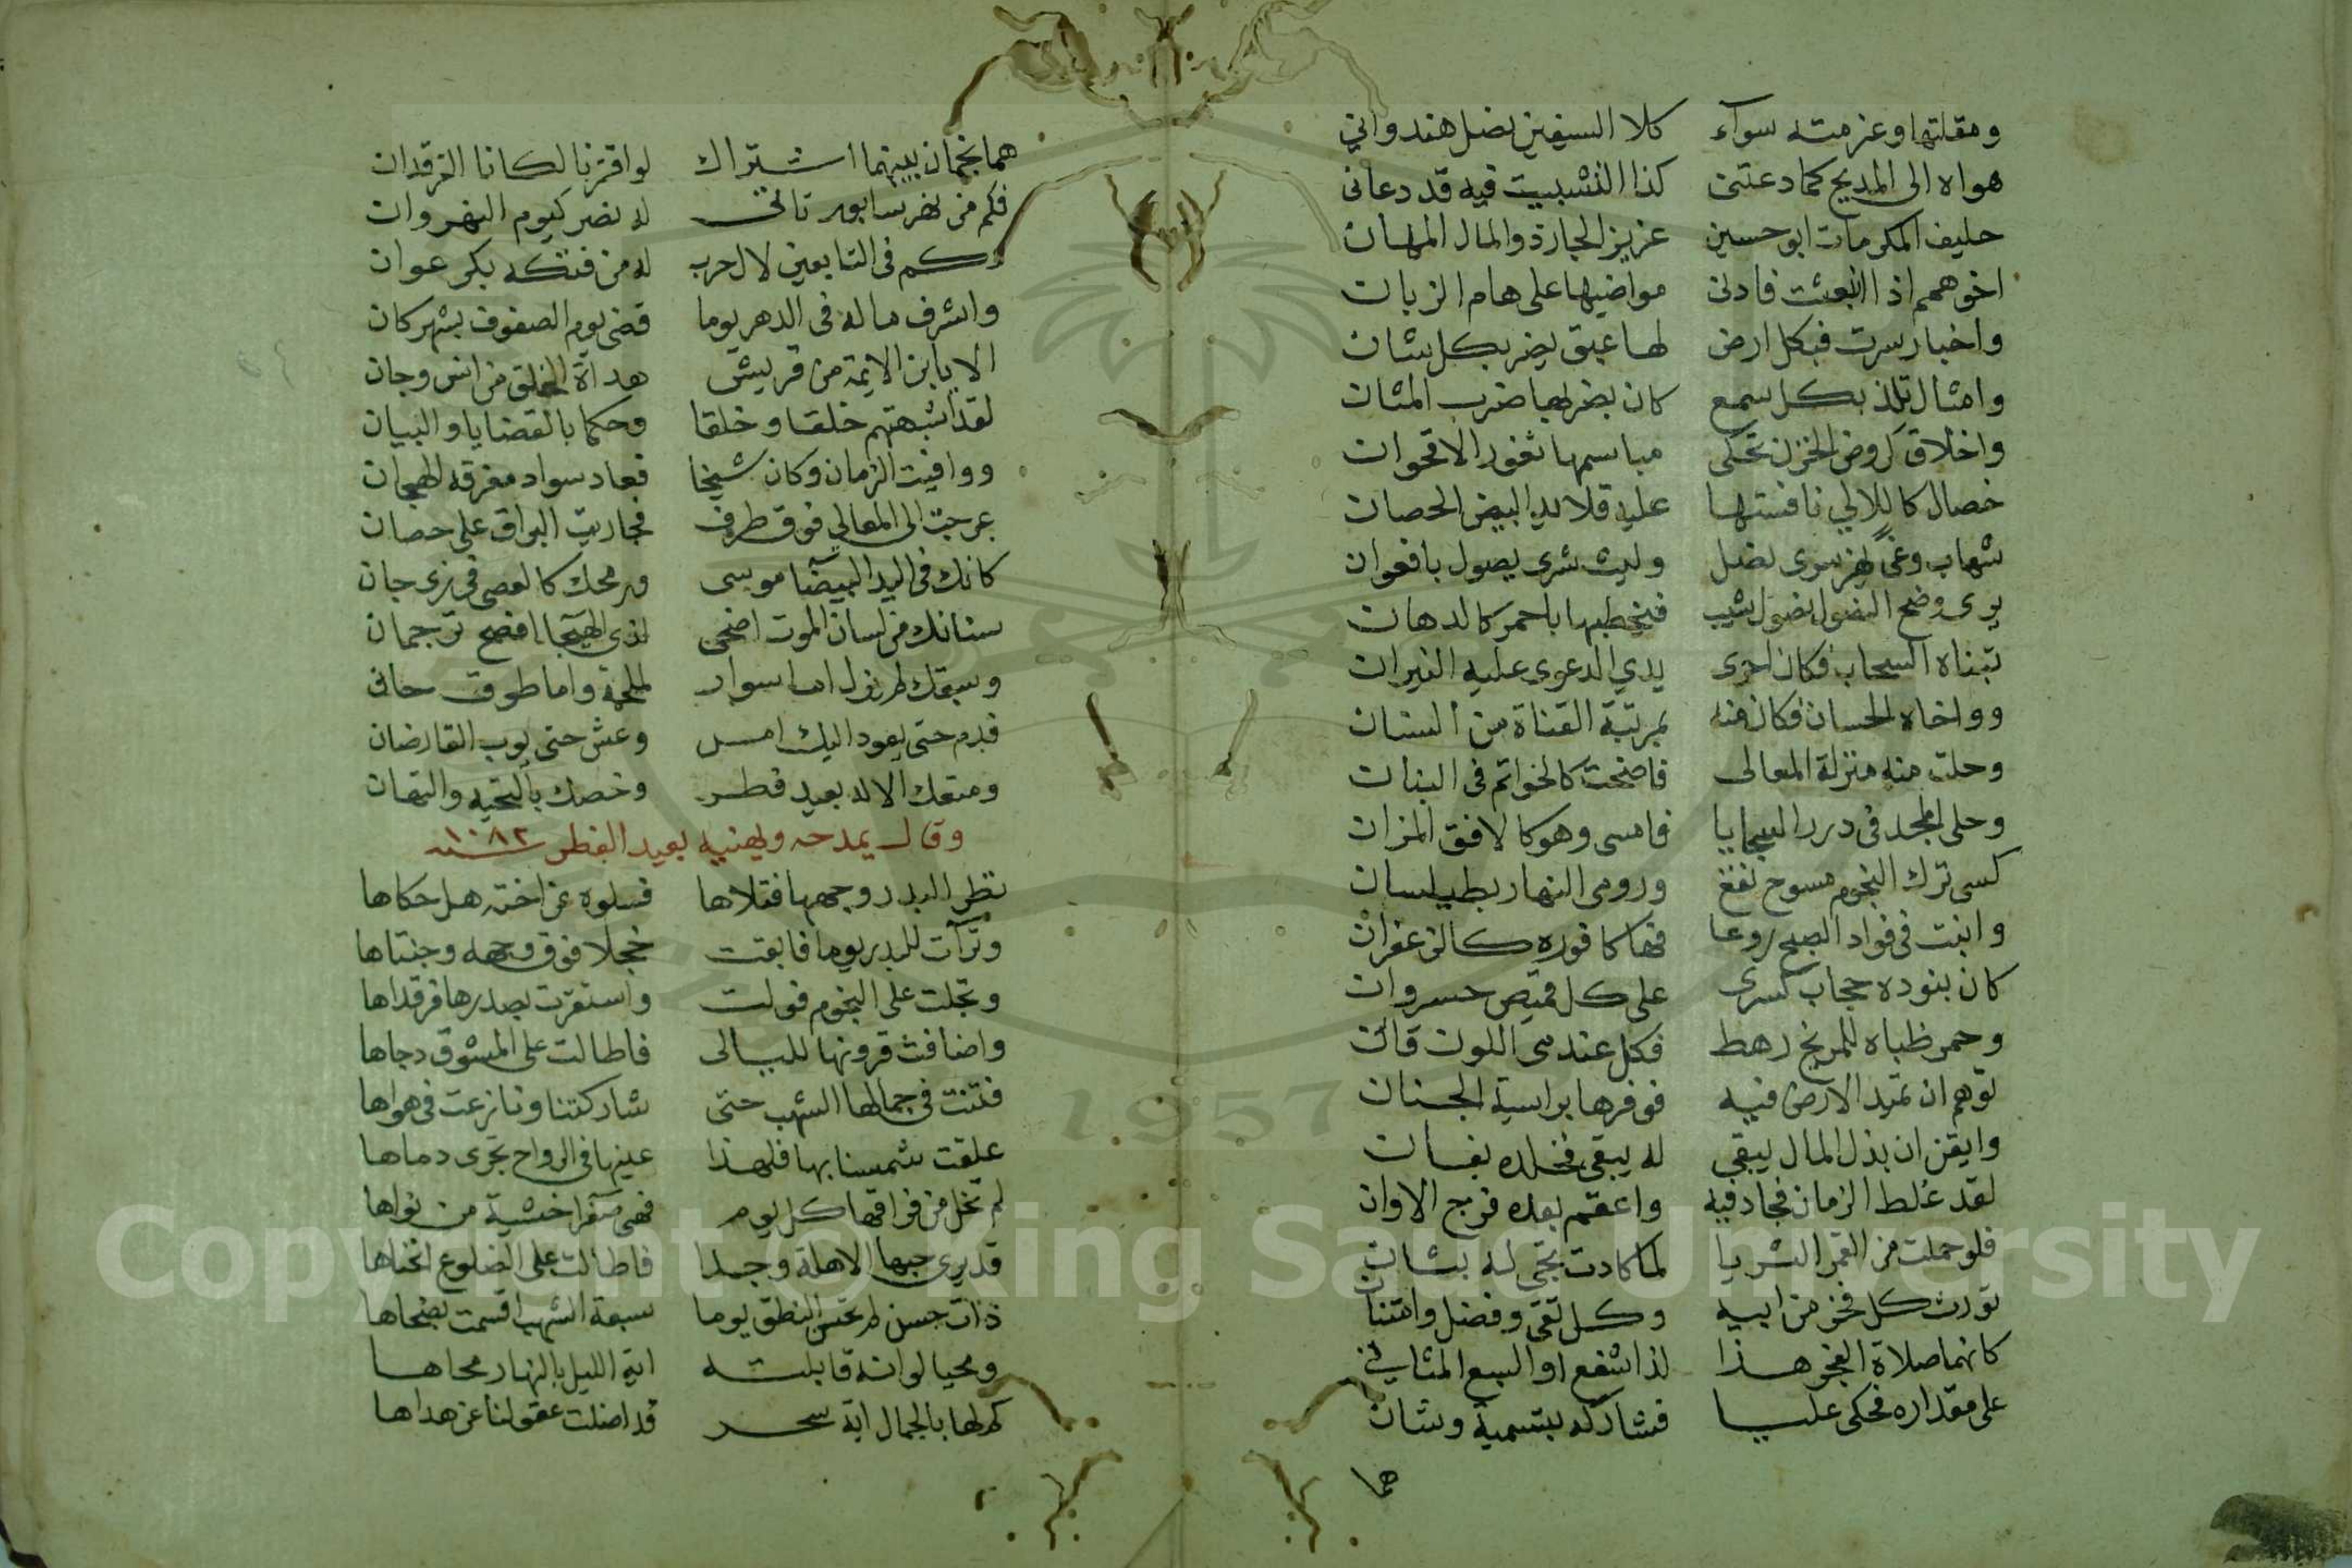 ومقلتها وعزمته سوآء كلا السيفين نصل هندواني
هواه الى المديح كما دعتنى كذا التشبيب فيه قد دعانى
حليف المكرمات ابو حسين عزيز الجار ذو المال المهان
اخو همم اذا انبعثت فادنى مواضيها على هام الزبان
واخبار سرت فبكل ارض لها عبق يضر بكل شان
وامثال تلذ بكل سمع كان بضربها ضرب المثان
واخلاق كروض الحزن تحكى مباسمها ثغور الاقحوان
خصال كاللالي نافستها عليه قلايد البيض الحصان
شهاب وغًى يهز سرى نصل وليث شرى يصول بافعوان
يرى وضح النصول نصول شيب فيخطبها باحمر كالدهان
تبناه السحاب فكان احرى يدي الدعوى عليه النيران
وواخاه الحسان فكان منه بمرتبة القناة من السنان
وحلت منه منزلة المعالى فاضحت كالخواتم فى البنان
وحلى المجد فى درر السجايا فامسى وهو كالافق المزان
كسى ترك النجوم مسوح نقع ورومى النهار بطيلسان
وابقت فى فواد الصبح روعا فها كافوره كالزعفران
كان بنوده حجاب كسرى على كل قميص خسروان
وحمر ظباه للمريخ رهط فكل عندمى اللون قان
توهم ان تميد الارض فيه فوفرها براسية الجنان
وايقن ان بذل المال يبقي له يبقى فخلده بفان
لقد غلط الزمان فجاد فيه واعقم بعده فرج الاوان
فلو حملت من القمر الثريا لما كادت تجى له بثان
تورث كل فخر من ابيه وكل تقى وفضل وامتنان
كانهما صلاة الفجر هذا لذا شفع او السبع المثاني
على مقداره فحكى عليا فشاركه بتسمية وشان
هما
هما نجمان بينهما اشتراك لو اقترنا لكانا الفرقدان
فكم من نهر سابور تاتى له نصر كيوم النهروان
وكم فى التابعين لال حرب له من فتكه بكر عوان
واشرف ماله فى الدهر يوما قضى يوم الصفوف بشهركان
الا يا ابن الايمة من قريش هداة الخلق من انس وجان
لقد اشبهتهم خلقا وخلقا وحكما بالقضايا والبيان
ووافيت الزمان وكان شيخا فعاد سواد مفرقه الهجان
عرجت الى المعالي فوق طرف فجاريت البراق على حصان
كانك فى اليد البيضآ موسى ورمحك كالعصى فى زى جان
سنانك من لسان الموت اضحى لذى الهيجآ افصح ترجمان
وسيفك لم يزل اما سوار لملحمة واما طوق حانى
فدم حتى يعود اليك امس وعش حتى يوب القارضان
ومتعك الاله بعيد فطر وخصك بالتحيه والتهان
وقال يمدحه ويهنيه بعيد الفطر سنه ١٠٨٢
نظر البدر وجهها فتلاها فسلوه عن اخته هل حكاها
وترآت للبدر يوما فابقت خجلا فوق وجهه وجنتاها
وتجلت على النجوم فولت واستقرت بصدرها فرقداها
واضافت قرونها لليالى فاطالت على المشوق دجاها
فتنت فى جمالها الشهب حتى شاركتنا ونازعت فى هواها
علقت شمسنا بها فلهذا عينها فى الرواح تجرى دماها
لم تخل من فراقها كل يوم فهى صفرا خشية من نواها
قد يرى حبها الاهلة وجدا فاطالت على الضلوع انحناها
ذات حسن لم تحس النطق يوما سبعة الشهب اقسمت بضحاها
ومحيا لو انه قابلته اية الليل بالنهار محاها
كم لها بالجمال اية سحر قد اضلت عقولنا عن هداها
Copyright © King Saud University
1957